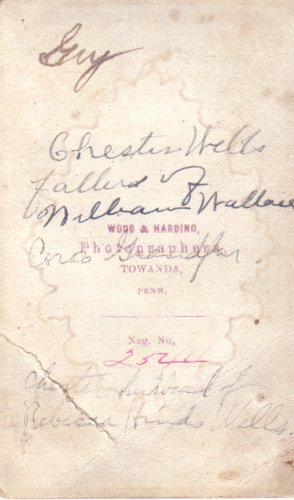 Gry
Chester Wells
father of
William Wallace
WOOD & HARDING,
Photographers
Coros Grandfar.
TOWANDA,
PENN.
Neg. No.
2544
Chester husband of
Rebecca Hinds Wells.